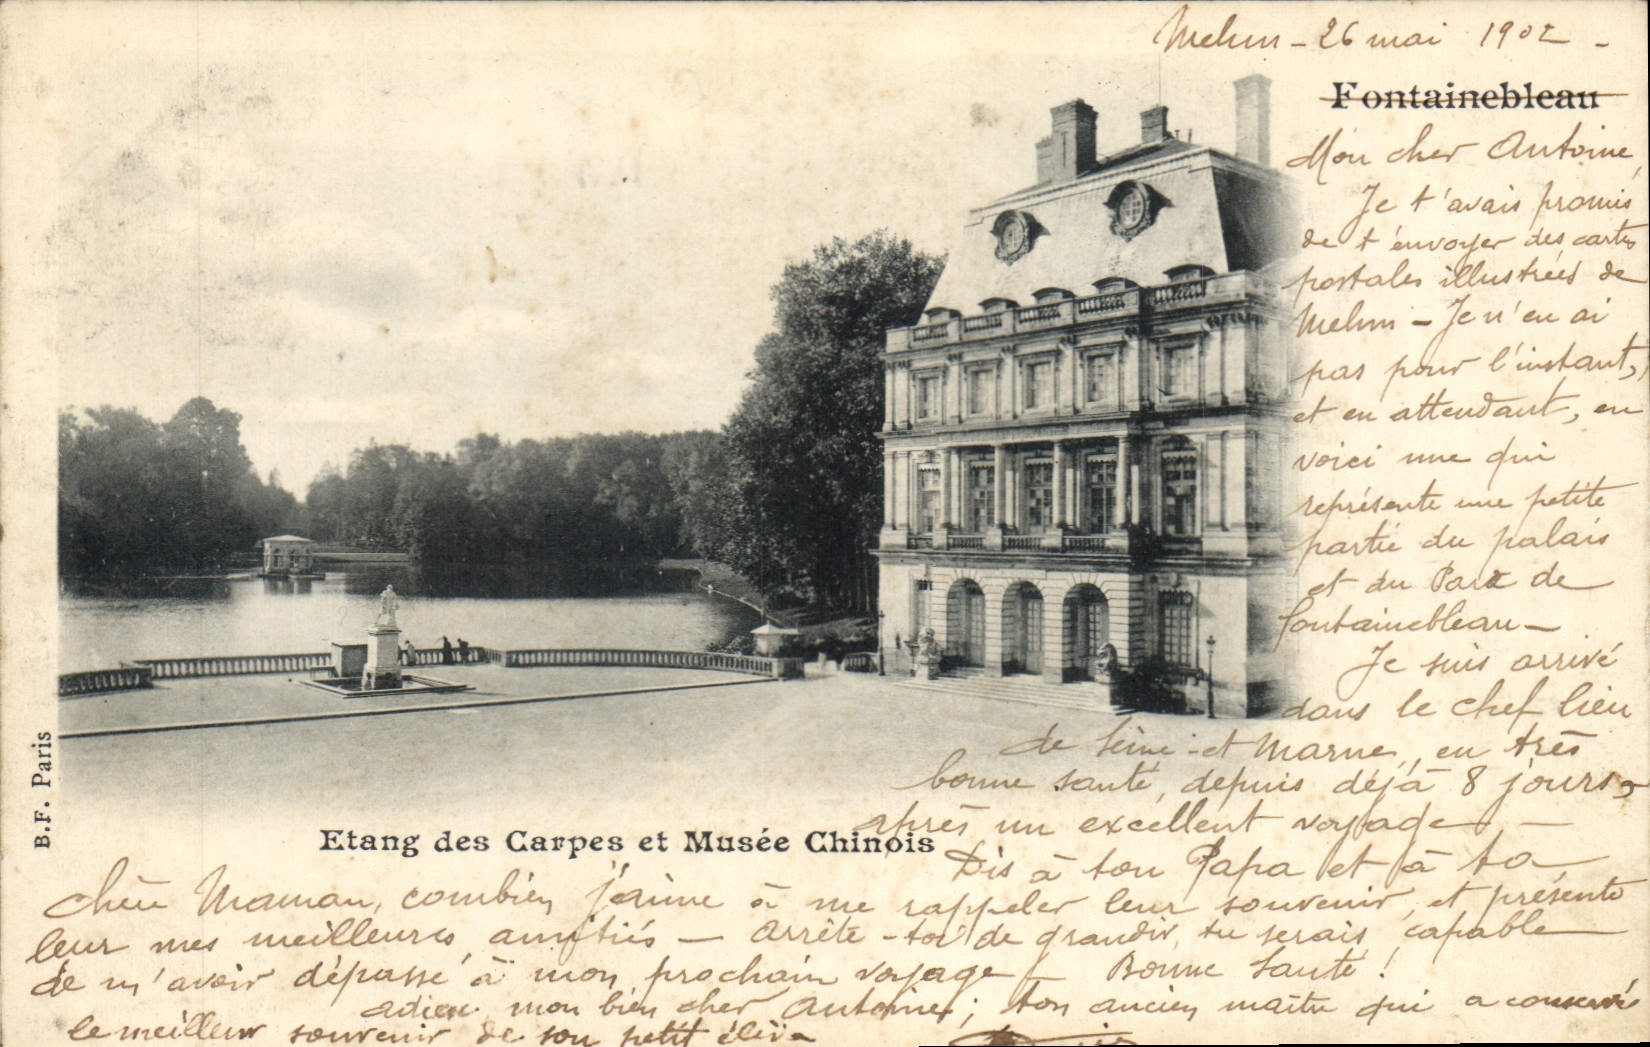 Melun - 26 mai 1902 -
Fontainebleau
Mon cher Antoine,
Je t'avais promis
de t'envoyer des cartes
postales illustrées de
Melun - Je n'en ai
pas pour l'instant,
et en attendant, en
voici une qui
représente une petite
partie du palais
et du Parc de
fontainebleau -
Je suis arrivé
dans le chef lieu
de Seine-et Marne, en très
bonne santé, depuis déjà 8 jours,
après un excellent voyage -
Dis à ton Papa et à ta
chère Maman, combien j'aime à me rappeler leur souvenir, et présente
leur mes meilleures amitiés - Arrête-toi de grandir, tu serais capable
de m'avoir dépassé à mon prochain voyage - Bonne Santé !
adieu mon bien cher Antoine ; ton ancien maître qui a conservé
le meilleur souvenir de son petit élève
B.F. Paris
Etang des Carpes et Musée Chinois